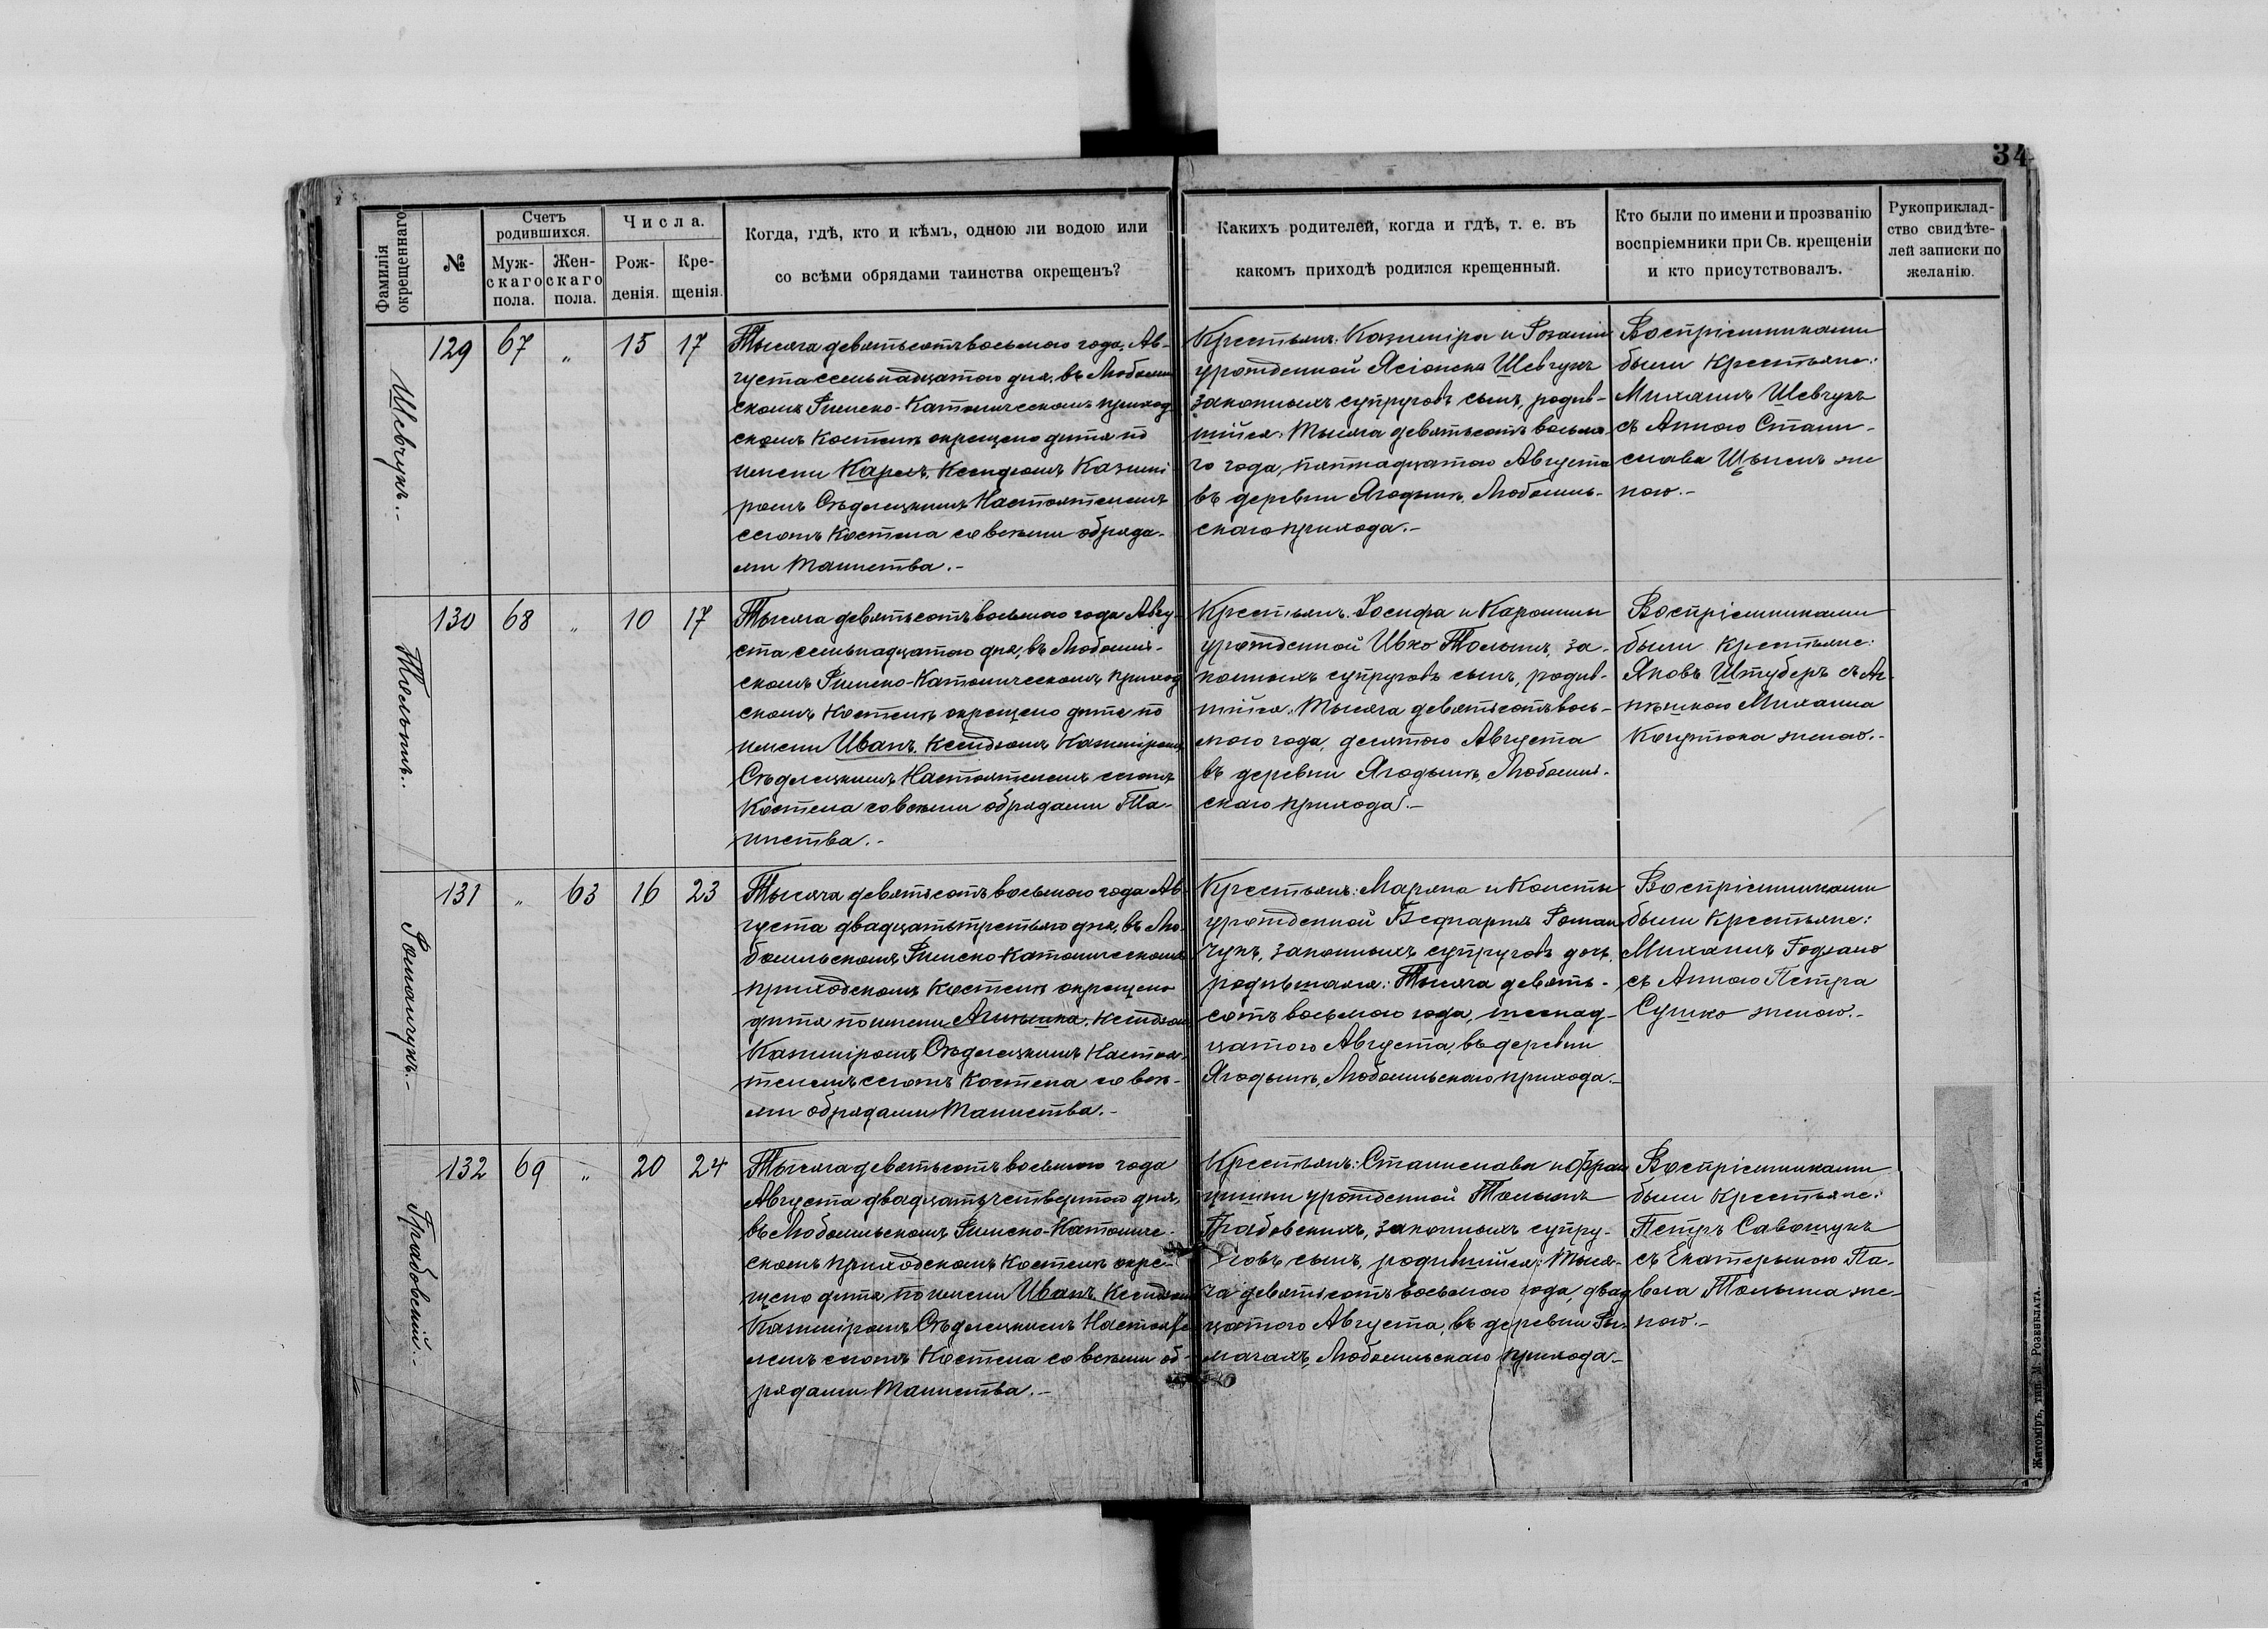 34
Фамилія
окрещеннаго
№
Счетъ
родившихся.
Муж-
скаго
пола.
Жен-
скаго
пола.
Числа.
Рож-
денія.
Кре-
щенія.
Когда, гдѣ, кто и кѣмъ, одною ли водою или
со всѣми обрядами таинства окрещенъ?
Какихъ родителей, когда и гдѣ, т. е. въ
какомъ приходѣ родился крещенный.
Кто были по имени и прозванію
воспріемники при Св. крещеніи
и кто присутствовалъ.
Рукоприклад-
ство свидѣте-
лей записки по
желанію.
Шевчукъ.-
129 67 „ 15 17
Тысяча девятьсотъ восьмого года, Ав-
густа семьнадцатого дня, въ Любомль
скомъ Римско-Католическомъ приход
скомъ Костелѣ окрещено дитя по
имени Карлъ, Ксендзомъ Казими
ромъ Сѣдлецкимъ Настоятелемъ
сегожъ Костела со всѣми обряда-
ми Таинства.-
Крестьянъ: Казиміра и Розаліи
урожденной Ясіонекъ Шевчукъ
законныхъ супруговъ сынъ, родив-
шійся: Тысяча девятьсотъ восьмо-
го года, пятнадцатого Августа
въ деревни Ягодынѣ, Любомль-
скаго прихода.-
Воспріемниками
были Крестьяне:
Михаилъ Шевчукъ
съ Анною Стани-
слава же
ною.-
130 68 „ 10 17
Тысяча девятьсотъ восьмого года Авгу-
ста семьнадцатого дня, въ Любомль-
скомъ Римско-Католическомъ приход
скомъ Костелѣ окрещено дитя по
имени Иванъ, Ксендзомъ Казиміромъ
Сѣдлецкимъ Настоятелемъ сегожъ
Костела со всѣми обрядами Та-
инства.-
Крестьянъ: Іосифа и Каролины
урожденной Ивхо за-
конныхъ супруговъ сынъ, родив-
шійся: Тысяча девятьсотъ вось-
мого года, десятого Августа
въ деревни Ягодынѣ, Любомль-
скаго прихода.-
Воспріемниками
были Крестьяне:
Яковъ Штуберъ съ Аг-
нѣшкою Михаила
женою.-
Романчукъ.-
131 „ 63 16 23
Тысяча девятьсотъ восьмого года Ав-
густа двадцатьтретьяго дня, въ Лю-
бомльскомъ Римско-Католическомъ
приходскомъ Костелѣ окрещено
дитя по имени Агнѣшка, Ксендзомъ
Казиміромъ Сѣдлецкимъ Настоя-
телемъ сегожъ Костела со всѣ-
ми обрядами Таинства.-
Крестьянъ: Маряна и
урожденной Беднаржъ Роман
чукъ, законныхъ супруговъ дочь,
родившаяся: Тысяча девять-
сотъ восьмого года, шеснад-
цатого Августа, въ деревни
Ягодынѣ, Любомльскаго прихода.-
Воспріемниками
были Крестьяне:
Михаилъ
съ Анною Петра
Сушко женою.-
Грабовскій.-
132 69 „ 20 24
Тысяча девятьсотъ восьмого года
Августа двадцатьчетвертого дня,
въ Любомльскомъ Римско-Католиче-
скомъ приходскомъ Костелѣ окре-
щено дитя по имени Иванъ, Ксендзомъ
Казиміромъ Сѣдлецкимъ Настояте-
лемъ сегожъ Костела со всѣми об-
рядами Таинства.-
Крестьянъ: Станислава и Фран
цишки урожденной
Грабовскихъ, законныхъ супру-
говъ сынъ, родившійся: Тыся-
ча девятьсотъ восьмого года, двад
цатого Августа, въ деревни Ры-
мачахъ, Любомльскаго прихода.-
Воспріемниками
были Крестьяне:
Петръ Савощукъ
съ Екатериною Па-
вела же-
ною.-
Житоміръ, тип. М. Розенблата.